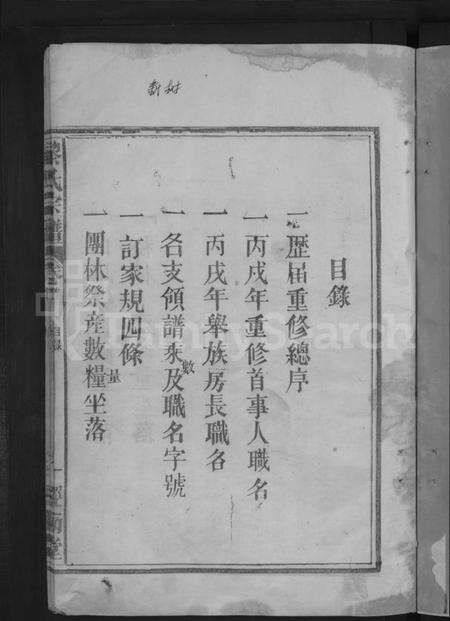 目錄
一歷屆重修總序
一丙戌年重修首事人職名
一丙戌年舉族房長職名
一各支領譜朱及職名字號
數
一訂家規四條
一團林祭產數糧坐落
量
氏宗譜
目錄
堂
FamilySearch